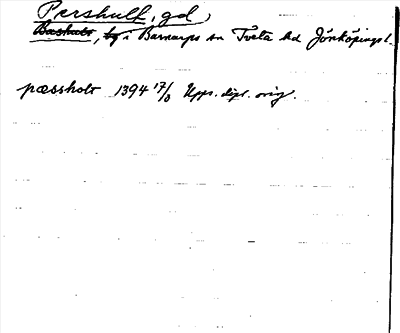 Pershult, gd,
Bashult, by i Barnarps sn Tveta hd Jönköpings l.
pæssholt 1394 17/8 Upps. dipl. orig.